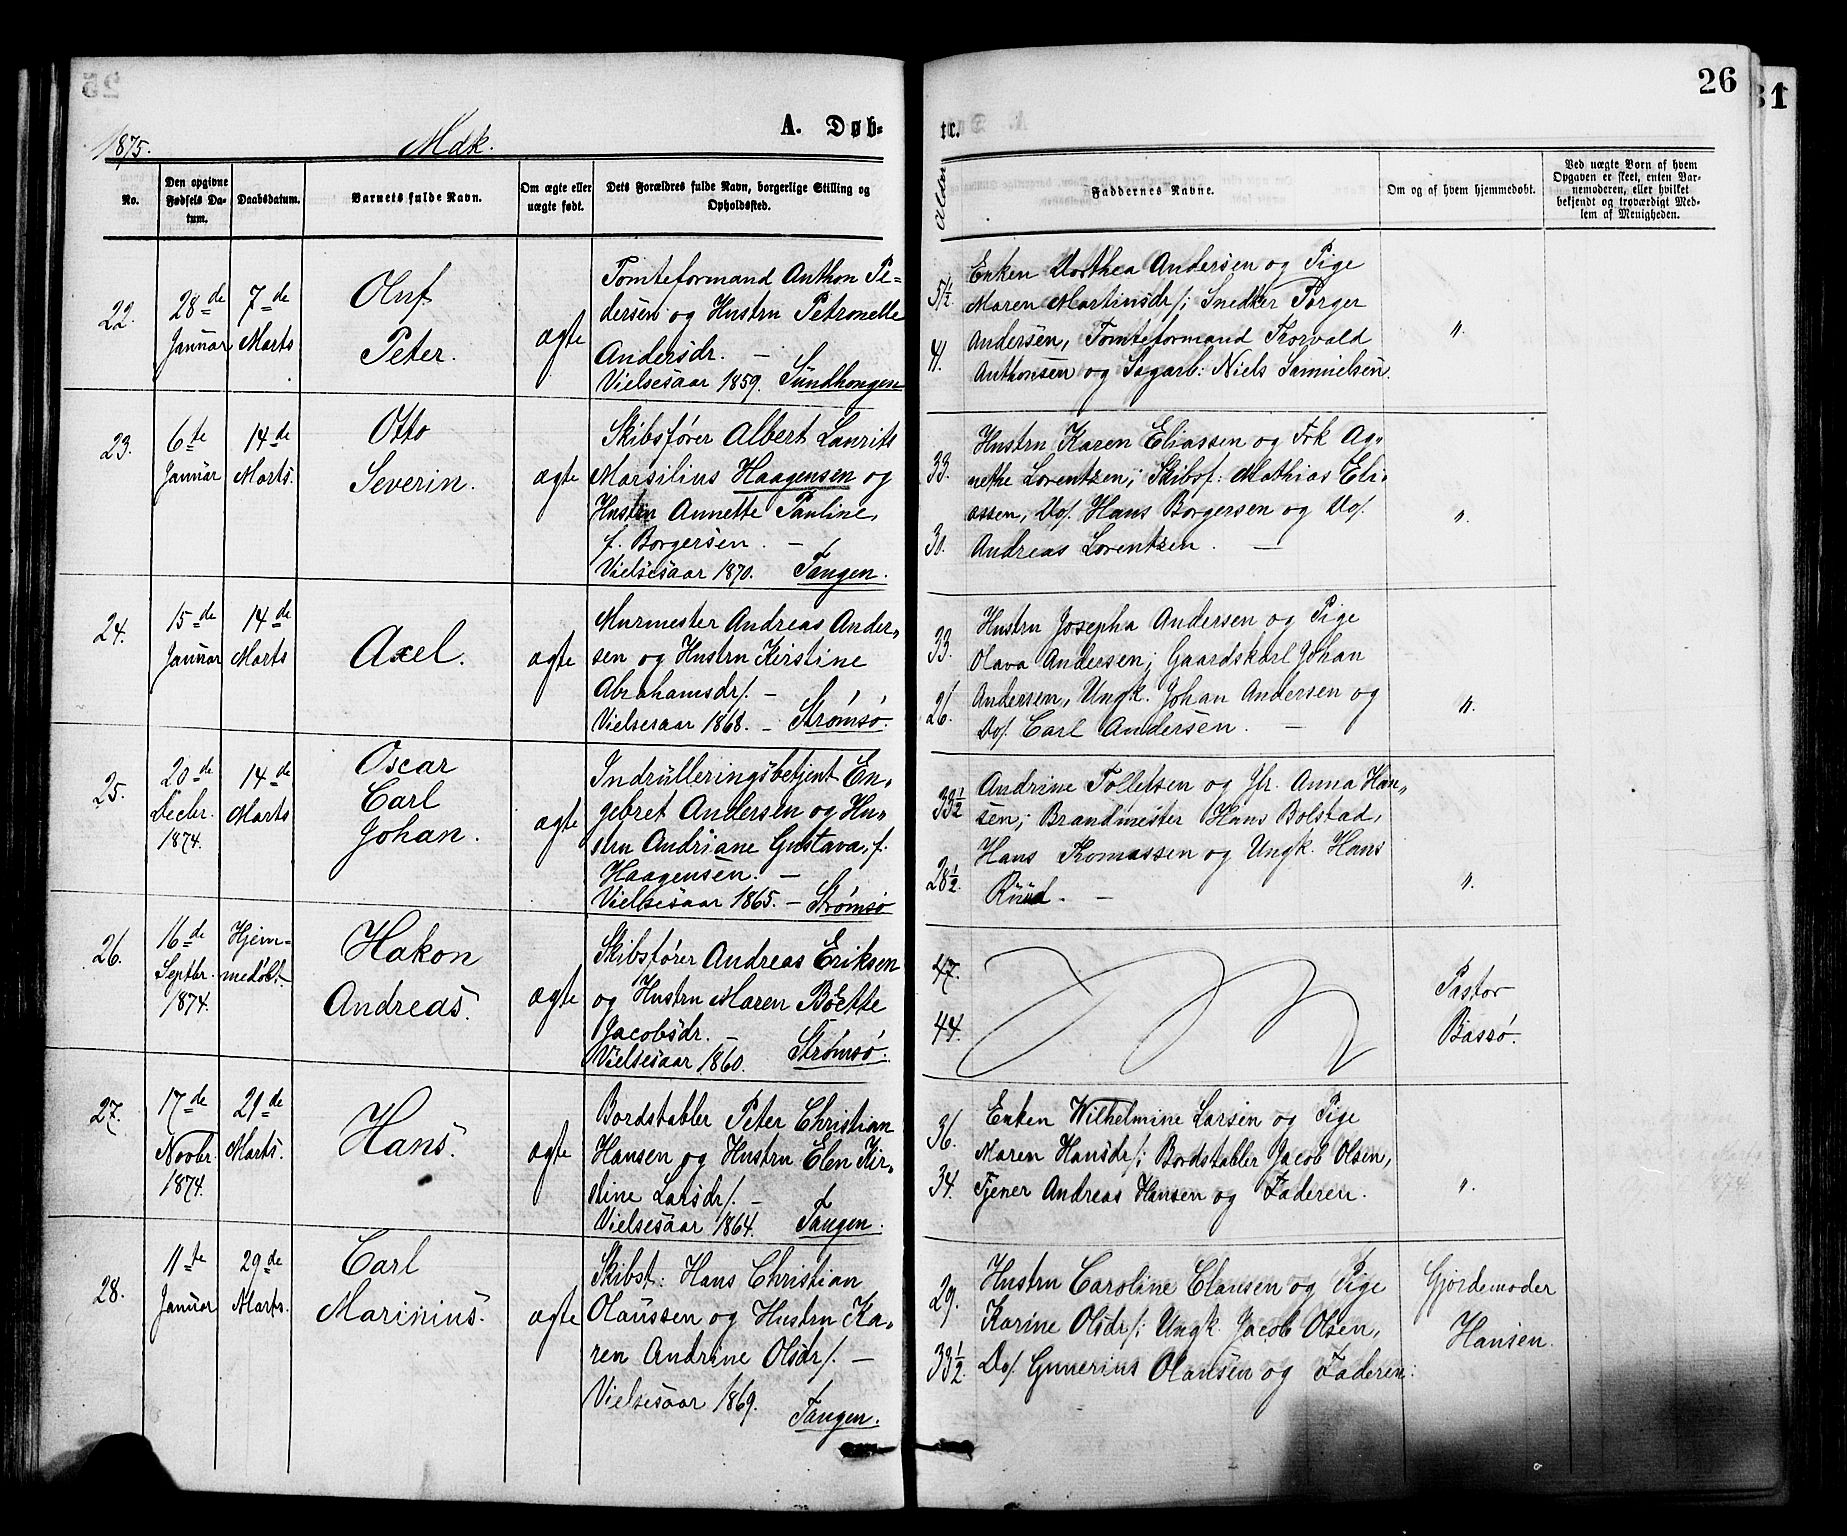 26
1875.
Mdk.
A. Døb-
te.
No.
Den opgivne Fødsels Datum.
Daabsdatum.
Barnets fulde Navn.
Om ægte eller uægte født.
Dets Forældres fulde Navn, borgerlige Stilling og Opholdssted.
Alder
Faddernes Navne.
Om og af hvem hjemmedøbt.
Ved uægte Børn af hvem
Opgaven er skeet, enten Bar-
nemoderen, eller hvilket
bekjendt og troværdigt Med-
lem af Menigheden.
22.
28de
Januar
7de
Marts
Oluf
Peter.
ægte
Tomteformand Anthon Pe-
dersen og Hustru Petronelle
Andersdr. —
Vielsesaar 1859. Sundhougen
51½
41.
Enken Dorthea Andersen og Pige
Maren Martinsdr/; Snedker Torger
Andersen, Tomteformand Thorvald
Anthonsen og Sagarb: Niels Samuelsen.
"
23.
6te
Januar
14de
Marts.
Otto
Severin.
ægte
Skibsfører Albert Laurits
Marsilius Haagensen og
Hustru Annette Pauline,
f. Borgersen. —
Vielsesaar 1870. Tangen.
33.
30.
Hustru Karen Eliassen og Frk Ag-
nethe Lorentzen; Skibsf: Mathias Eli-
assen, Do/. Hans Borgersen og Do/.
Andreas Lorentzen. —
"
24.
15de
Januar
14de
Marts
Axel.
ægte
Murmester Andreas Ander-
sen og Hustru Kirstine
Abrahamsdr/. —
Vielsesaar 1868. — Strømsø.
33.
26.
Hustru Josepha Andersen og Pige
Olava Andersen; Gaardskarl Johan
Andersen, Ungk. Johan Andersen og
Do/. Carl Andersen. —
"
25.
20de
Decbr.
1874.
14de
Marts
Oscar
Carl
Johan.
ægte
Indrulleringsbetjent En-
gebret Andersen og Hu-
stru Andriane Gustava, f.
Haagensen. —
Vielsesaar 1865. — Strømsø
33½
28½.
Andrine Tollefsen og Jfr. Anna Han-
sen; Brandmester Hans Bolstad,
Hans Thomassen og Ungk. Hans
Ruud. —
"
26.
16de
Septbr.
1874.
Hjem-
medøbt
Hakon
Andreas.
ægte
Skibsfører Andreas Eriksen
og Hustru Maren Bøette
Jacobsdr. —
Vielsesaar 1860. Strømsø.
47.
44.
Pastor
Bassø.
27.
17de
Novbr.
1874.
29de
Marts.
Hans.
ægte
Bordstabler Peter Christian
Hansen og Hustru Elen Kir-
stine Larsdr/. —
Vielsesaar 1864. Tangen.
36.
34.
Enken Wilhelmine Larsen og Pige
Maren Hansdr/; Bordstabler Jacob Olsen,
Tjener Andreas Hansen og Faderen.
"
28.
11te
Januar
29de
Marts.
Carl
Marinius.
ægte
Skibst: Hans Christian
Olaussen og Hustru Ka-
ren Andrine Olsdr/. —
Vielsesaar 1869.
Tangen.
29.
33½.
Hustru Caroline Clausen og Pige
Karine Olsdr/; Ungk. Jacob Olsen,
Do/. Gunerius Olausen og Faderen.
Gjordemoder
Hansen.